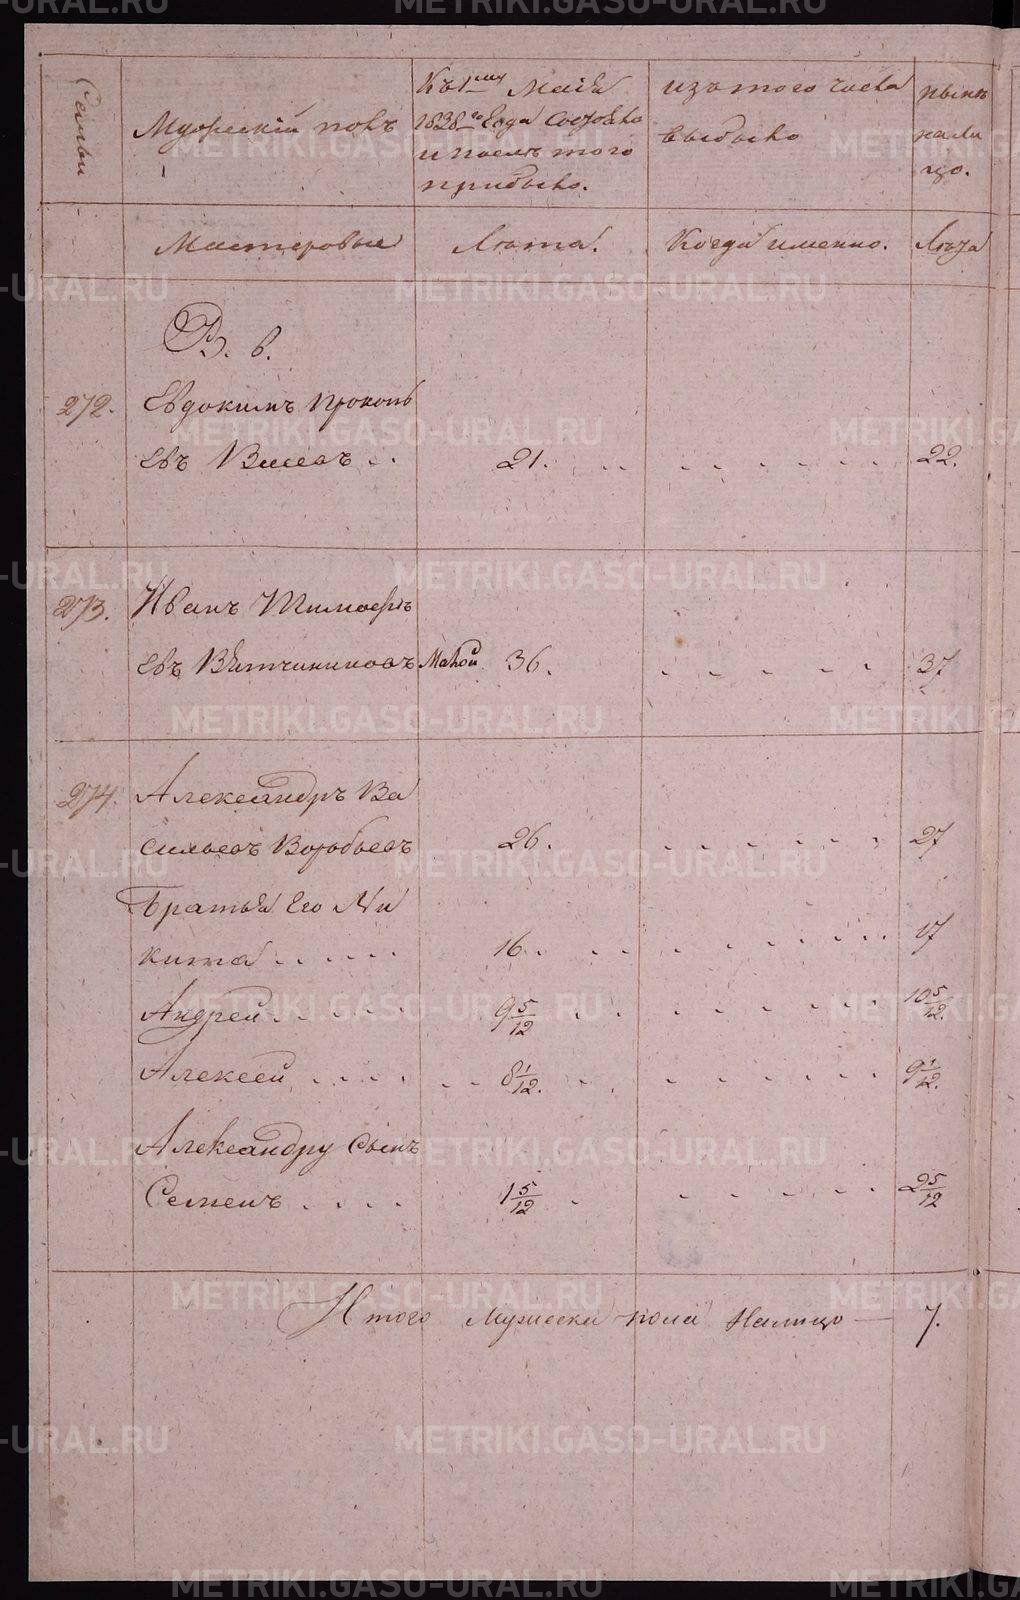 Семьи
Мужескiй полъ
Къ 1му Маiя
1838го Года Состояло
и после того
прибыло.
изъ того числа
выбыло
нынѣ
нали
цо.
Мастеровые
Лѣта.
Когда именно.
Лѣта
В. в.
272. Евдокимъ Прокопь
евъ 21. 22.
273. Иванъ Тимофѣ
евъ Вѣтчинниковъ Малой 36. 37
274. Александръ Ва
сильевъ Воробьевъ 26. 27
Братья Его Ни
кита 16. 17
Андрей 9 5/12 10 5/12.
Алексей 8 1/12. 9 1/12.
Александру сынъ
Семенъ 1 5/12 2 5/12
Итого Мужеска пола Налицо — 7.
METRIKI.GASO-URAL.RU